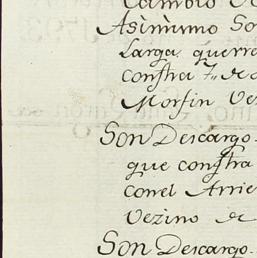 Cambio de
Asimismo So
Larga, querra
consta
Morfin Ve
Son Descargo
que consta
con el Arrie
Vezino de
Son Descargo.